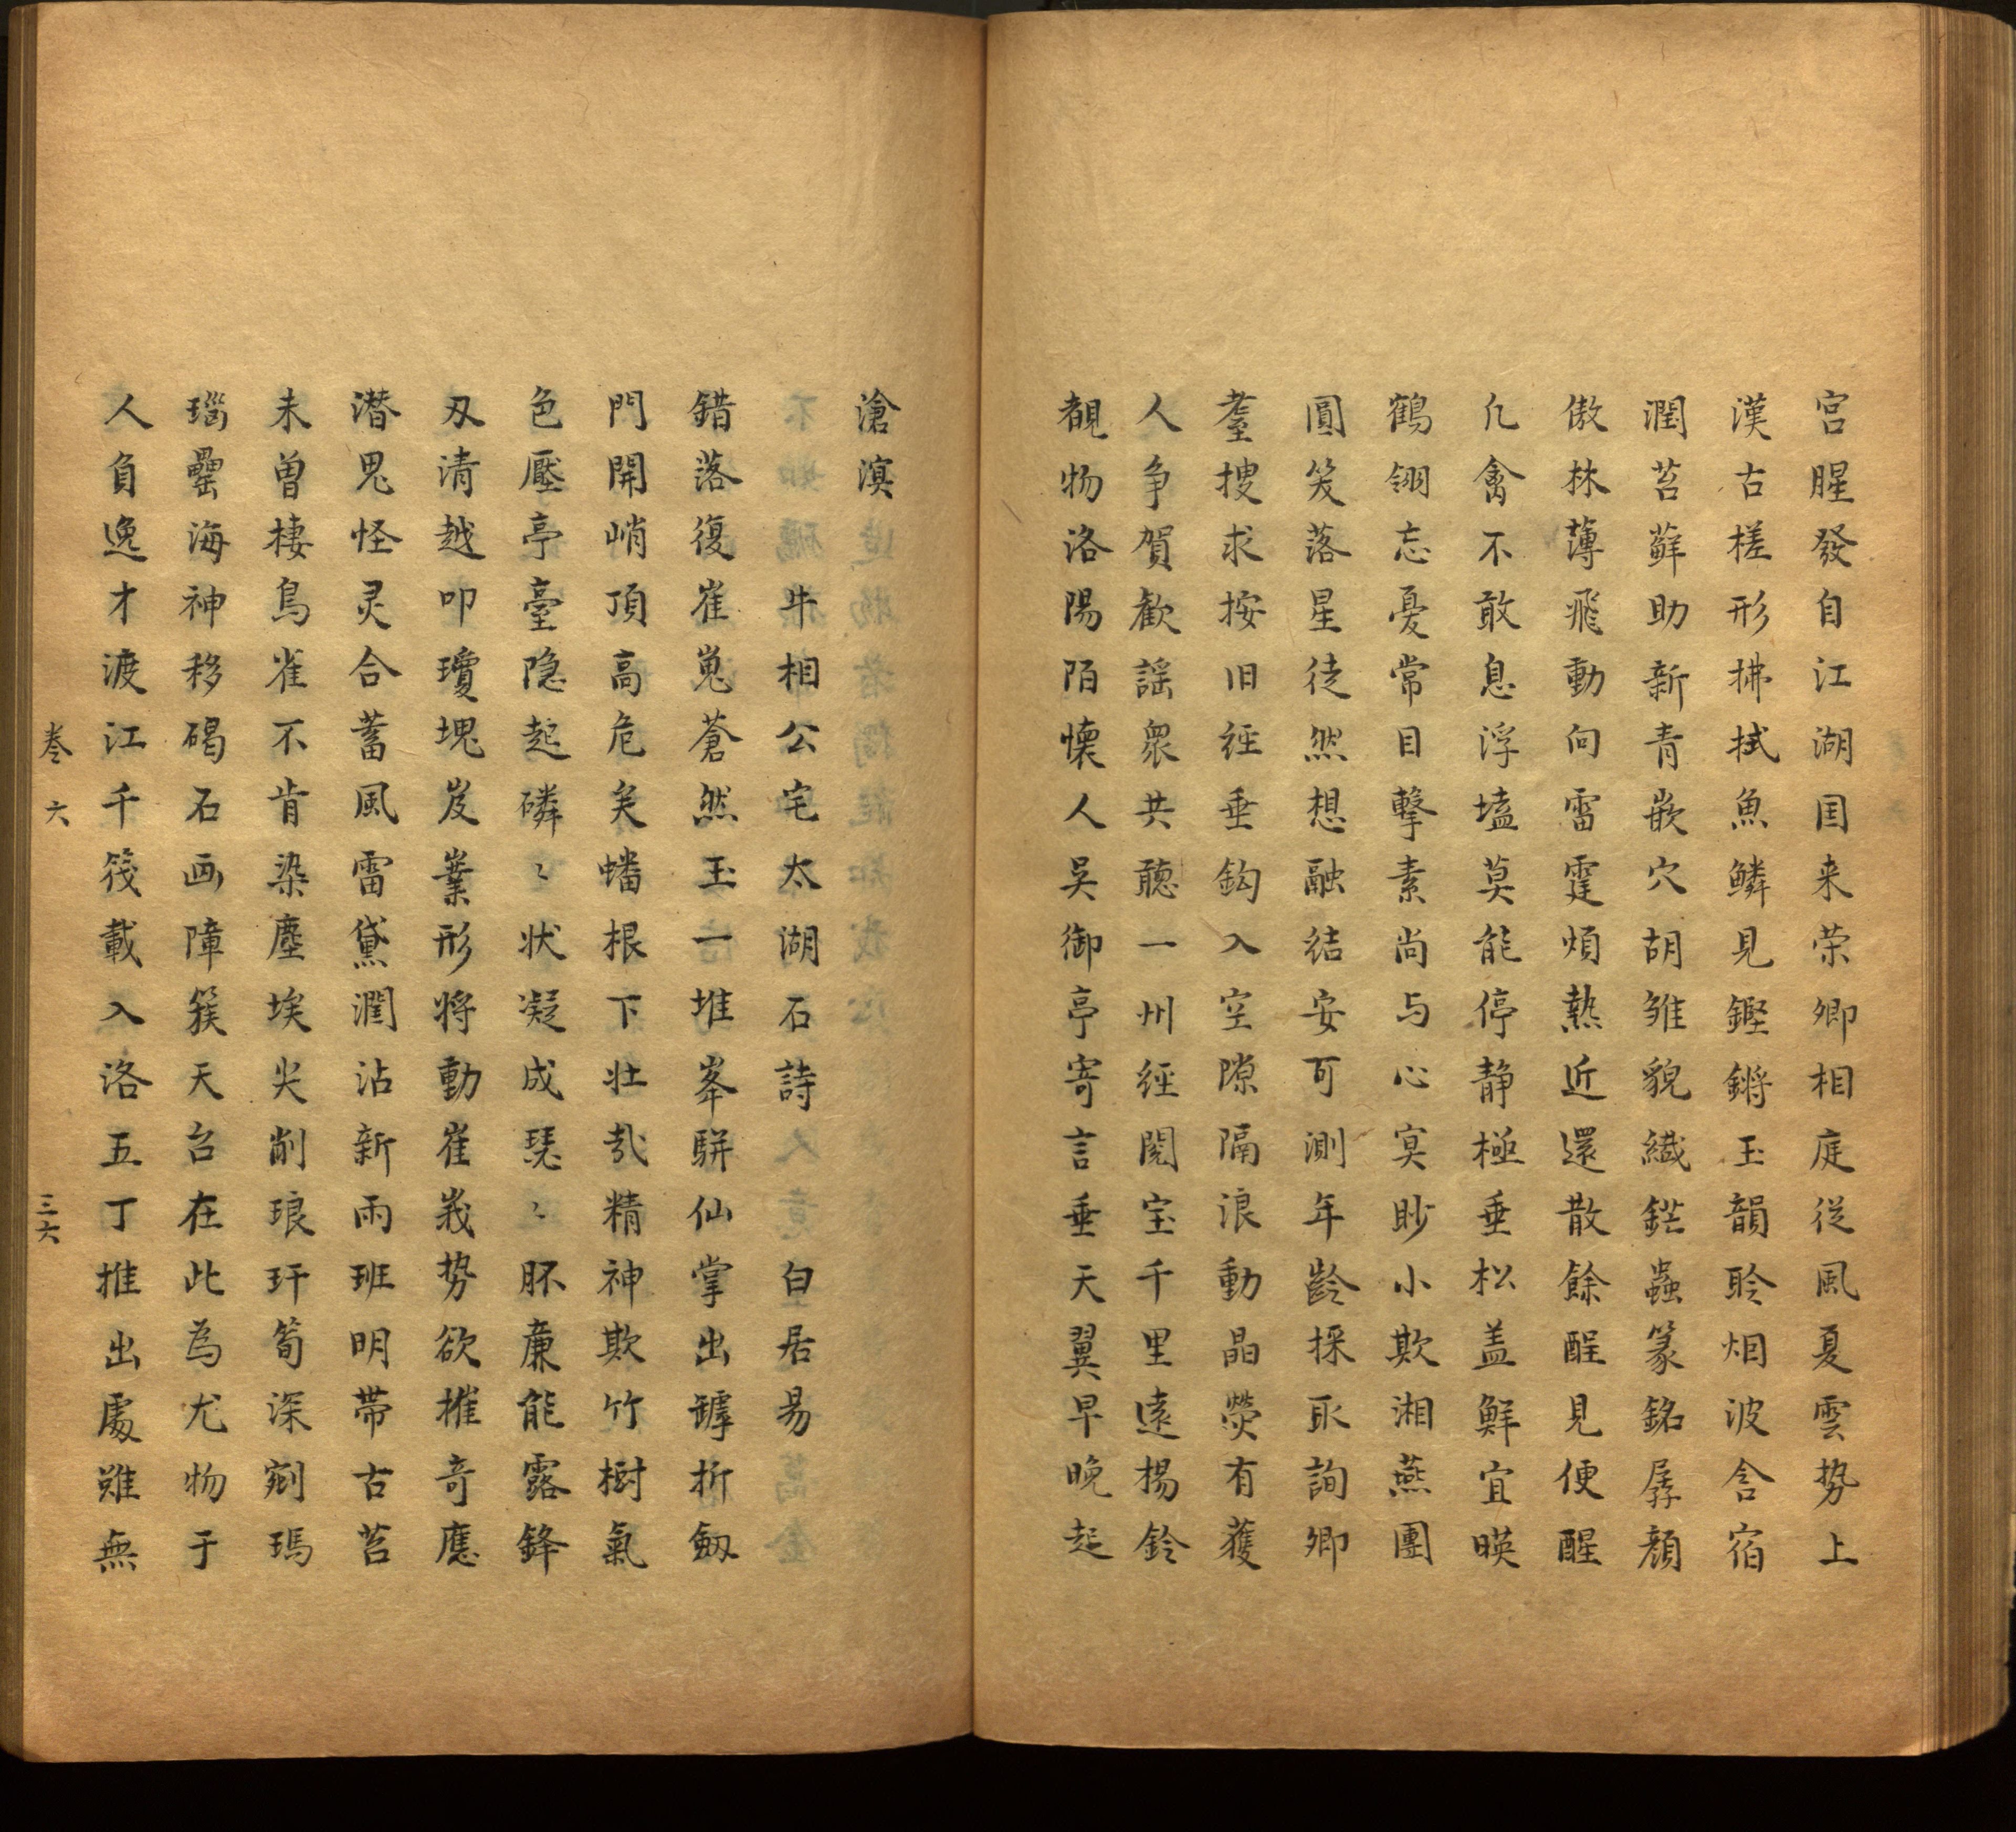 宫腥發自江湖国来荣卿相庭従風夏雲势上
漢古槎形拂拭魚鱗見鏗鏘玉韻聆烟波含宿
潤苔蘚助新青嵌穴胡雏貌纎鋩蟲篆銘孱顔
傲林薄飛動向雷霆煩熱近還散餘酲見便醒
凢禽不敢息浮壒莫能停静極垂松盖鮮宜暎
鶴翎忘憂常目擊素尚与心冥眇小欺湘燕團
圓笑落星徒然想融結安可測年齡採取詢卿
耋搜求按旧経垂鈎入空隙隔浪動晶熒有獲
人争賀歡謡衆共聽一州經閱宝千里遠揚鈴
覩物洛陽陌懐人吴御亭寄言垂天翼早晚起
滄溟
牛相公宅太湖石詩白居易
錯落復崔嵬蒼然玉一堆峯駢仙掌出罅拆劒
門開峭頂高危矣蟠根下壯㢤精神欺竹樹氣
色壓亭臺隐起磷〻状凝成瑟〻胚廉能露鋒
刄清越叩瓊塊岌嶪形将動崔峩势欲摧奇應
潜鬼怪灵合蓄風雷黛潤沾新雨班明帯古苔
未曽棲鳥雀不肯染塵埃尖削琅玕筍深剜瑪
瑙罍海神移碣石画障簇天台在此為尤物于
人負逸才渡江千筏載入洛五丁推出處雖無
卷六
三六